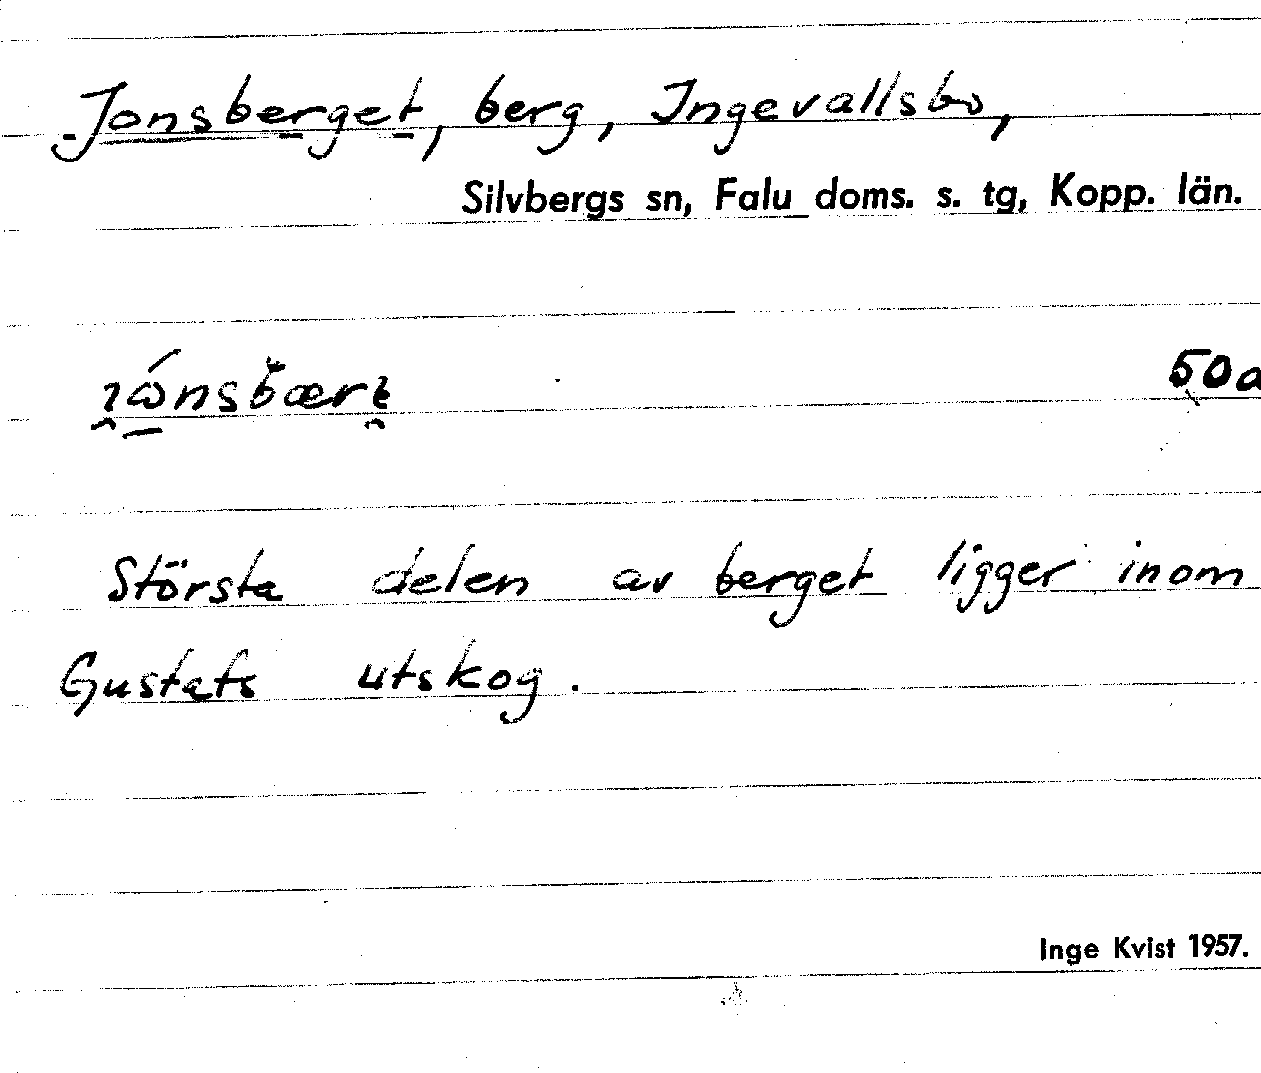 Jonsberget, berg, Ingevallsbo,
Silvbergs sn, Falu doms. s. tg, Kopp. län.
50a
Största delen av berget ligger inom
Gustafs utskog.
Inge Kvist 1957.